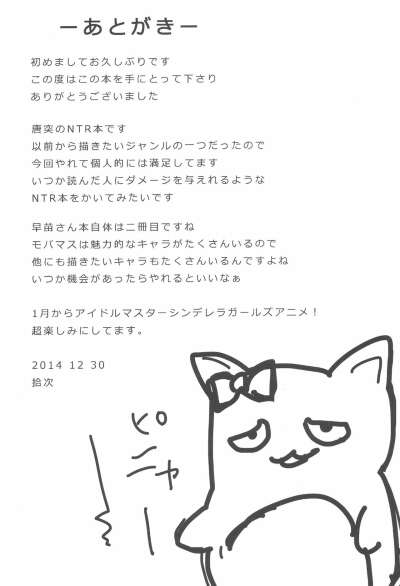 ーあとがきー
初めましてお久しぶりです
この度はこの本を手にとって下さり
ありがとうございました
唐突のNTR本です
以前から描きたいジャンルの一つだったので
今回やれて個人的には満足してます
いつか読んだ人にダメージを与えれるような
NTR本をかいてみたいです
早苗さん本自体は二冊目ですね
モバマスは魅力的なキャラがたくさんいるので
他にも描きたいキャラもたくさんいるんですよね
いつか機会があったらやれるといいなぁ
1月からアイドルマスターシンデレラガールズアニメ！
超楽しみにしてます。
2014 12 30
拾次
ピニャー